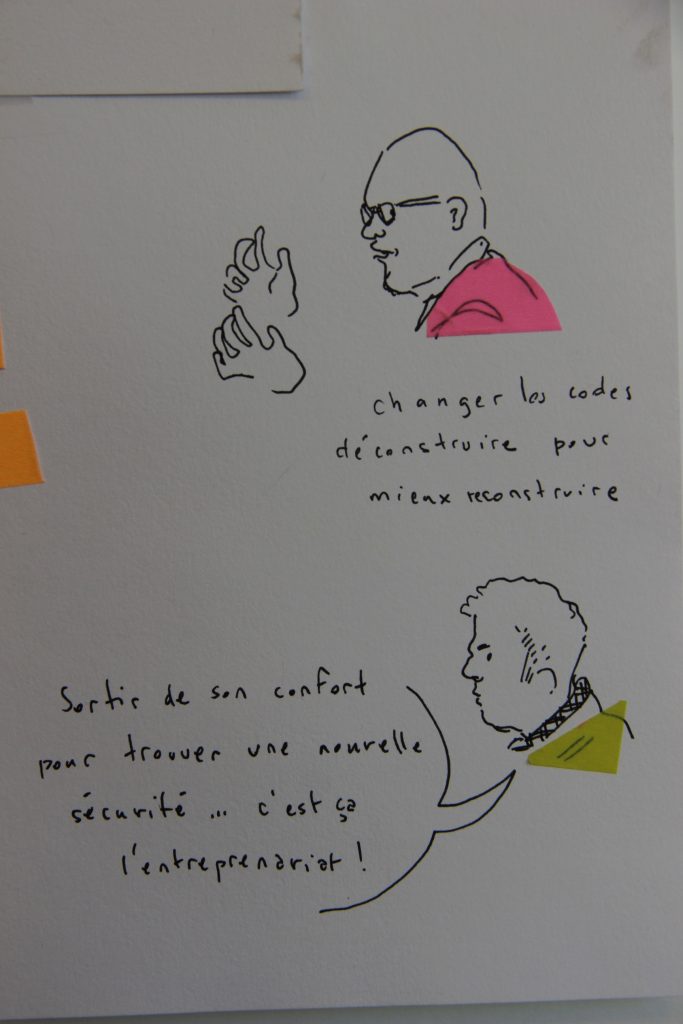 changer les codes
déconstruire pour
mieux reconstruire
Sortir de son confort
pour trouver une nouvelle
sécurité ... c'est ça
l'entreprenariat !